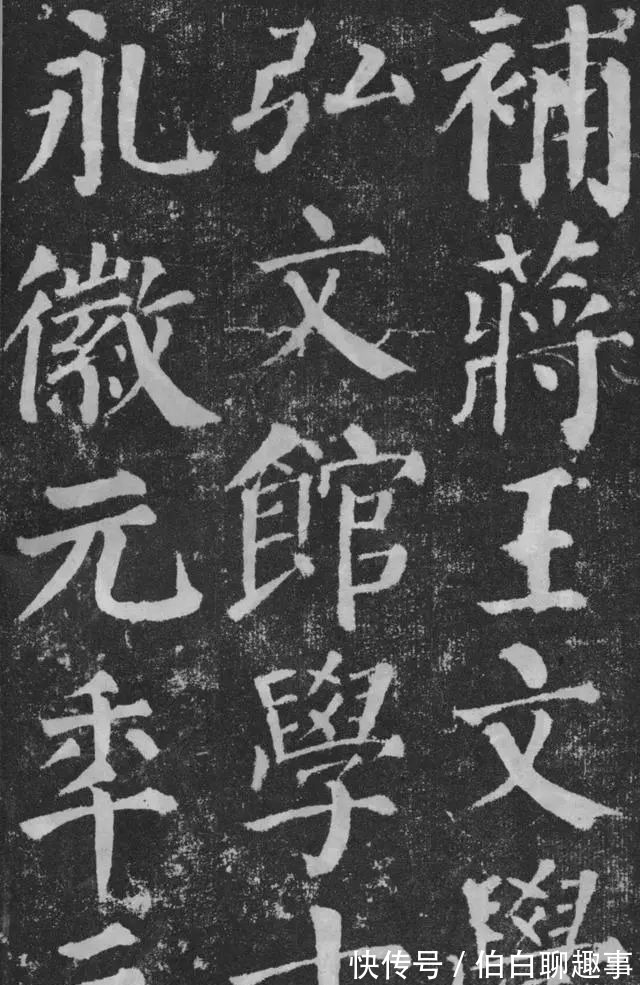 補蔣王文學
弘文館學
永徽元年
快传号 / 伯白聊趣事